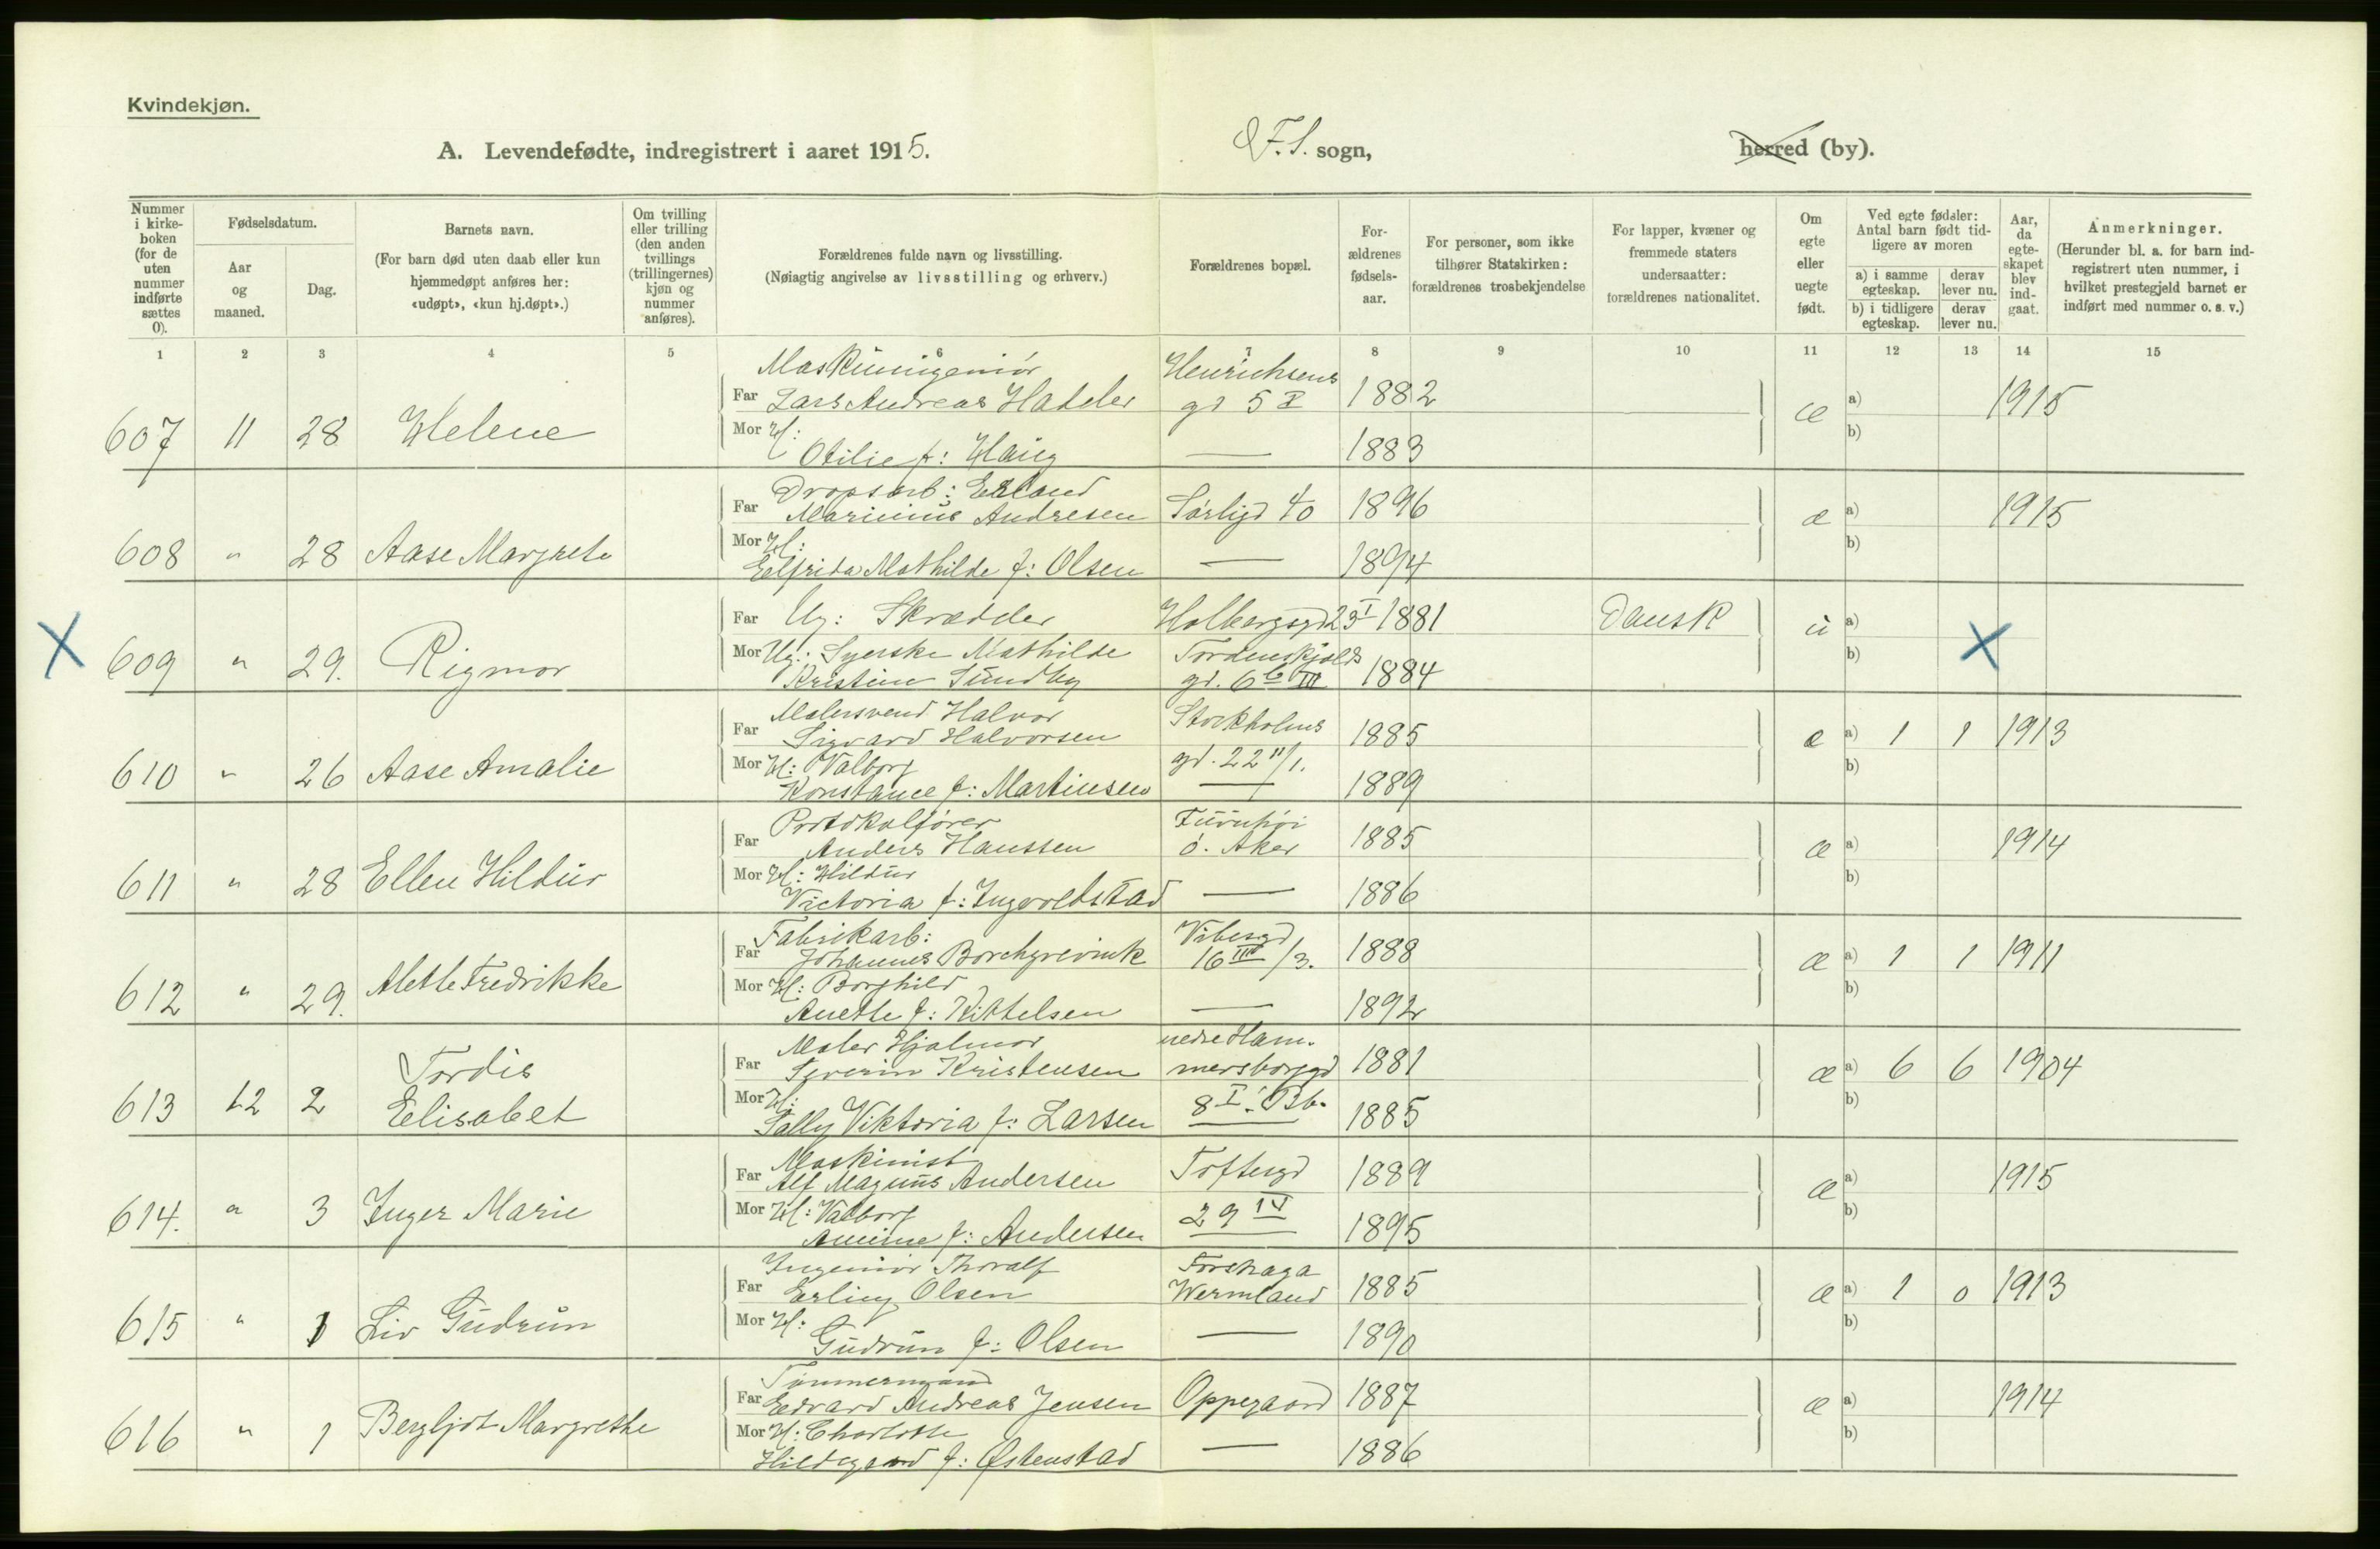 Kvindekjøn.
A. Levendefødte, indregistrert i aaret 1915.
F. S. sogn,
herred (by).
Nummer i kirkeboken (for de uten nummer indførte sættes 0).
Fødselsdatum.
Aar og maaned.
Dag.
Barnets navn.
(For barn død uten daab eller kun hjemmedøpt anføres her: «udøpt», «kun hj.døpt».)
Om tvilling eller trilling (den anden tvillings (trillingernes) kjøn og nummer anføres).
Forældrenes fulde navn og livsstilling.
(Nøiagtig angivelse av livsstilling og erhverv.)
Forældrenes bopæl.
Forældrenes fødselsaar.
For personer, som ikke tilhører Statskirken: forældrenes trosbekjendelse
For lapper, kvæner og fremmede staters undersaatter: forældrenes nationalitet.
Om egte eller uegte født.
Ved egte fødsler: Antal barn født tidligere av moren
a) i samme egteskap.
derav lever nu.
b) i tidligere egteskap.
derav lever nu.
Aar, da egteskapet blev indgaat.
Anmerkninger.
(Herunder bl. a. for barn indregistrert uten nummer, i hvilket prestegjeld barnet er indført med nummer o. s. v.)
1 2 3 4 5 6 7 8 9 10 11 12 13 14 15
Maskiningeniör Henrichsens
Far Lars Andreas Hateler gd 5 1882 æ a) 1915
607 11 28 Helene
Mor H: b)
Otilie f: Haug — 1883
Dropsarb: Erland
Far Marinius Andresen Sörligd 40 1896 æ a) 1915
608 " 28 Aase Margrete
Mor H: b)
Elfrida Mathilde f: Olsen — 1894
Far Ug: Skrædder Holbergsgd 23 I 1881 Dansk u a)
X 609 " 29. Rigmor X
Mor Ug: Syerske Mathilde Tordenskjolds b)
Kristine Sundby gd. 6 b III 1884
Malersvend Halvor Stockholms
Far Sigvard Halvorsen 1885 æ a) 1 1 1913
610 " 26 Aase Amalie
Mor H: Valborg gd. 22 II/1. b)
Konstance f: Martinsen — 1889
Protokolförer Furuhöi
Far Anders Hanssen ö. Aker 1885 æ a) 1914
611 " 28 Ellen Hildur
Mor H: Hildur b)
Victoria f: Ingvoldstad — 1886
Fabrikarb: Vibesgd
Far Johannes Borchgrevink 16 III /3. 1888 æ a) 1 1 1911
612 " 29. Alette Fredrikke
Mor H: Borghild b)
Anette f: Kittelsen — 1892
Maler Hjalmar nedre Ham-
Far Severin Kristensen mersborggd 1881 æ a) 6 6 1904
613 12 2 Tordis Elisabet
Mor H: 8 I. Bb. b)
Sally Viktoria f: Larsen — 1885
Maskinist
Far Alf Magnus Andersen Toftesgd 1889 æ a) 1915
614. " 3 Inger Marie
Mor H: Valborg 29 IV b)
f: Andersen — 1895
Ingeniör Thoralf Forshaga
Far Erling Olsen Wermland 1885 æ a) 1 0 1913
615 " 1 Liv Gudrun
Mor H: b)
Gudrun f: Olsen — 1890
Tömmermand
Far Edvard Andreas Jensen Oppegaard 1887 æ a) 1914
616 " 1 Bergljot Margrethe
Mor H: Charlotte b)
Hildegard f: Østenstad — 1886